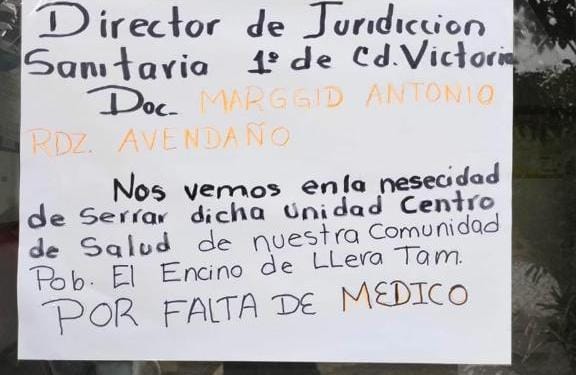 Director de Juridiccion
Sanitaria 1ª de Cd. Victoria
Doc. MARGGID ANTONIO
RDZ. AVENDAÑO
Nos vemos en la nesecidad
de serrar dicha unidad Centro
de Salud de nuestra Comunidad
Pob. El Encino de LLera Tam.
POR FALTA DE MEDICO